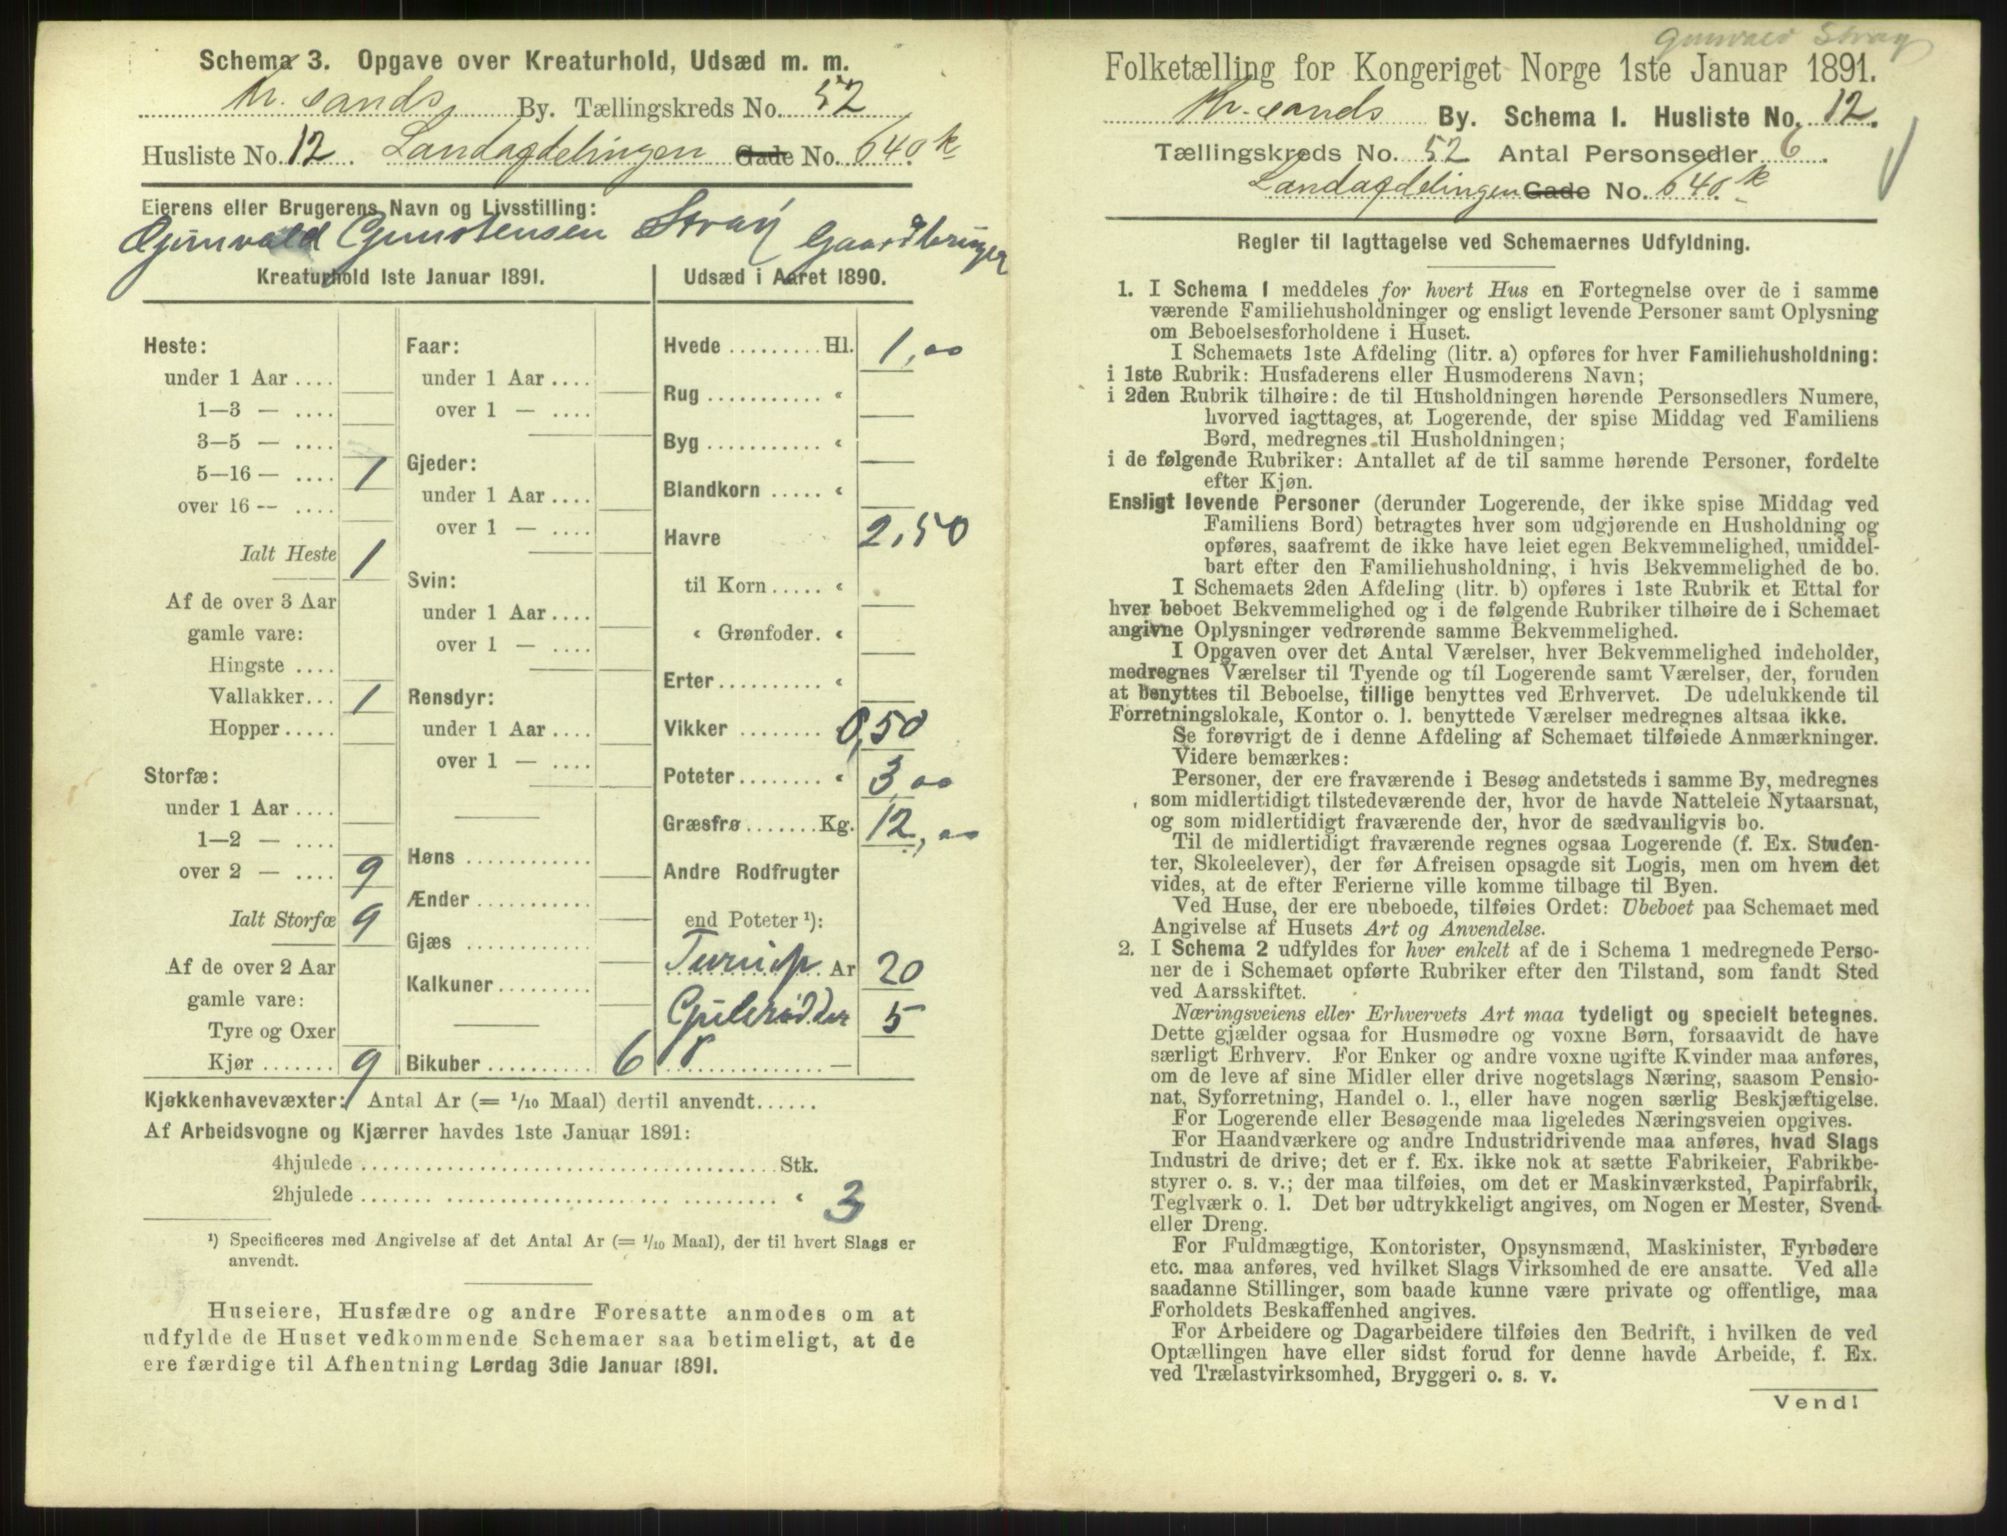 Schema 3. Opgave over Kreaturhold, Udsæd m. m.
Kr. sands By. Tællingskreds No. 52
Husliste No. 12. Landafdelingen Gade No. 640 k
Eierens eller Brugerens Navn og Livsstilling:
Gunvald Gunstensen Stray Gaardbruger
Kreaturhold 1ste Januar 1891.
Heste:
under 1 Aar ....
1—3 — ....
3—5 — ....
5—16 — .... 1
over 16 — ....
Ialt Heste 1
Af de over 3 Aar
gamle vare:
Hingste ....
Vallakker... 1
Hopper.....
Storfæ:
under 1 Aar ....
1—2 — ....
over 2 — .... 9
Ialt Storfæ 9
Af de over 2 Aar
gamle vare:
Tyre og Oxer
Kjør ....... 9
Faar:
under 1 Aar ....
over 1 — ....
Gjeder:
under 1 Aar ....
over 1 — ....
Svin:
under 1 Aar ....
over 1 — ....
Rensdyr:
under 1 Aar ....
over 1 — ....
Høns ............
Ænder ...........
Gjæs ............
Kalkuner.........
Bikuber .......... 6
Udsæd i Aaret 1890.
Hvede ......... Hl. 1,00
Rug ........... «
Byg ........... «
Blandkorn ..... «
Havre 2,50
til Korn ..... «
« Grønfoder. «
Erter........... «
Vikker ........ 0,50
Poteter........ « 3,00
Græsfrø....... Kg. 12,00
Andre Rodfrugter
end Poteter ¹):
Turnip Ar 20
Gulerødder 5
............... —
Kjøkkenhavevæxter: Antal Ar (= 1/10 Maal) dertil anvendt......
Af Arbeidsvogne og Kjærrer havdes 1ste Januar 1891:
4hjulede ........................................ Stk.
2hjulede ........................................ « 3
¹) Specificeres med Angivelse af det Antal Ar (= 1/10 Maal), der til hvert Slags er
anvendt.
Huseiere, Husfædre og andre Foresatte anmodes om at
udfylde de Huset vedkommende Schemaer saa betimeligt, at de
ere færdige til Afhentning Lørdag 3die Januar 1891.
Gunvald Stray
Folketælling for Kongeriget Norge 1ste Januar 1891.
Kr. sands By. Schema 1. Husliste No. 12.
Tællingskreds No. 52 Antal Personsedler 6.
Landafdelingen Gade No. 640. k
Regler til Iagttagelse ved Schemaernes Udfyldning.
1. I Schema 1 meddeles for hvert Hus en Fortegnelse over de i samme
værende Familiehusholdninger og ensligt levende Personer samt Oplysning
om Beboelsesforholdene i Huset.
I Schemaets 1ste Afdeling (litr. a) opføres for hver Familiehusholdning:
i 1ste Rubrik: Husfaderens eller Husmoderens Navn;
i 2den Rubrik tilhøire: de til Husholdningen hørende Personsedlers Numere,
hvorved iagttages, at Logerende, der spise Middag ved Familiens
Bord, medregnes til Husholdningen;
i de følgende Rubriker: Antallet af de til samme hørende Personer, fordelte
efter Kjøn.
Ensligt levende Personer (derunder Logerende, der ikke spise Middag ved
Familiens Bord) betragtes hver som udgjørende en Husholdning og
opføres, saafremt de ikke have leiet egen Bekvemmelighed, umiddel-
bart efter den Familiehusholdning, i hvis Bekvemmelighed de bo.
I Schemaets 2den Afdeling (litr. b) opføres i 1ste Rubrik et Ettal for
hver beboet Bekvemmelighed og i de følgende Rubriker tilhøire de i Schemaet
angivne Oplysninger vedrørende samme Bekvemmelighed.
I Opgaven over det Antal Værelser, hver Bekvemmelighed indeholder,
medregnes Værelser til Tyende og til Logerende samt Værelser, der, foruden
at benyttes til Beboelse, tillige benyttes ved Erhvervet. De udelukkende til
Forretningslokale, Kontor o. l. benyttede Værelser medregnes altsaa ikke.
Se forøvrigt de i denne Afdeling af Schemaet tilføiede Anmærkninger.
Videre bemærkes:
Personer, der ere fraværende i Besøg andetsteds i samme By, medregnes
som midlertidigt tilstedeværende der, hvor de havde Natteleie Nytaarsnat,
og som midlertidigt fraværende der, hvor de sædvanligvis bo.
Til de midlertidigt fraværende regnes ogsaa Logerende (f. Ex. Studen-
ter, Skoleelever), der før Afreisen opsagde sit Logis, men om hvem det
vides, at de efter Ferierne ville komme tilbage til Byen.
Ved Huse, der ere ubeboede, tilføies Ordet: Ubeboet paa Schemaet med
Angivelse af Husets Art og Anvendelse.
2. I Schema 2 udfyldes for hver enkelt af de i Schema 1 medregnede Perso-
ner de i Schemaet opførte Rubriker efter den Tilstand, som fandt Sted
ved Aarsskiftet.
Næringsveiens eller Erhvervets Art maa tydeligt og specielt betegnes.
Dette gjælder ogsaa for Husmødre og voxne Børn, forsaavidt de have
særligt Erhverv. For Enker og andre voxne ugifte Kvinder maa anføres,
om de leve af sine Midler eller drive nogetslags Næring, saasom Pensio-
nat, Syforretning, Handel o. l., eller have nogen særlig Beskjæftigelse.
For Logerende eller Besøgende maa ligeledes Næringsveien opgives.
For Haandværkere og andre Industridrivende maa anføres, hvad Slags
Industri de drive; det er f. Ex. ikke nok at sætte Fabrikeier, Fabrikbe-
styrer o. s. v.; der maa tilføies, om det er Maskinværksted, Papirfabrik,
Teglværk o. l. Det bør udtrykkeligt angives, om Nogen er Mester, Svend
eller Dreng.
For Fuldmægtige, Kontorister, Opsynsmænd, Maskinister, Fyrbødere
etc. maa anføres, ved hvilket Slags Virksomhed de ere ansatte. Ved alle
saadanne Stillinger, som baade kunne være private og offentlige, maa
Forholdets Beskaffenhed angives.
For Arbeidere og Dagarbeidere tilføies den Bedrift, i hvilken de ved
Optællingen have eller sidst forud for denne havde Arbeide, f. Ex.
ved Trælastvirksomhed, Bryggeri o. s. v.
Vend!